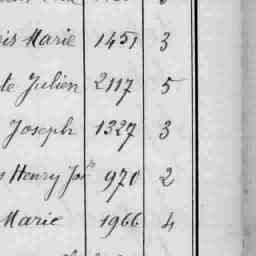 is Marie 1451 3
te Julien 2117 5
Joseph 1327 3
s Henry Jos^h 970 2
Marie 1966 4